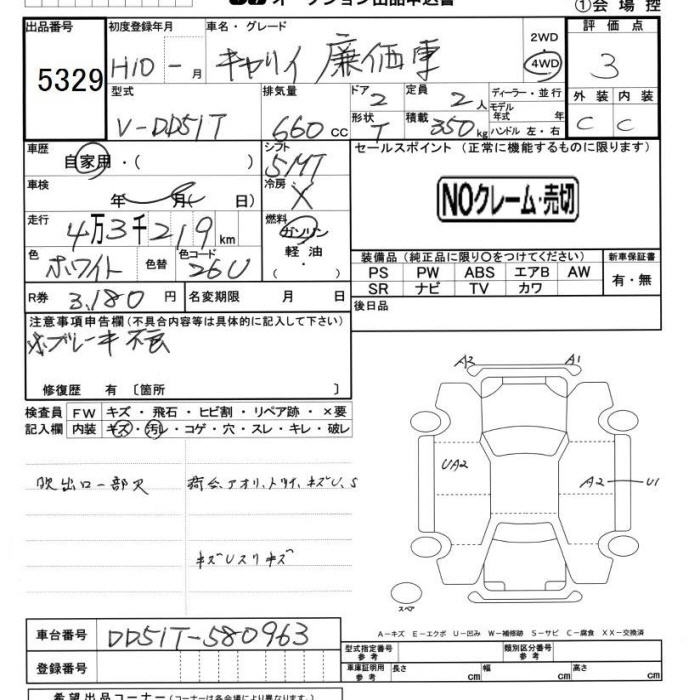 オークション出品申込書
①会場控
出品番号 5329
初度登録年月 H10 - 月
車名・グレード キャリイ 廉価車
2WD 4WD
評価点 3
型式 V-DD51T
排気量 660cc
ドア 2
形状 T
定員 2人
積載 350kg
ディーラー・並行
モデル年式 年
ハンドル 左・右
外装 内装
C C
車歴 自家用・( )
シフト 5MT
セールスポイント (正常に機能するものに限ります)
車検 年 月( 日)
冷房 X
NOクレーム・売切
走行 4万3千219km
燃料 ガソリン 軽油 ・( )
色 ホワイト 色替
色コード 26U
装備品 (純正品に限り〇をつけてください) 新車保証書
PS PW ABS エアB AW
SR ナビ TV カワ
有・無
R券 3,180円
名変期限 月 日
後日品
注意事項申告欄 (不具合内容等は具体的に記入して下さい)
※ブレーキ不良
修復歴 有 〔箇所 〕
検査員記入欄
FW キズ・飛石・ヒビ割・リペア跡・×要
内装 キズ・汚レ・コゲ・穴・スレ・キレ・破レ
A2 A1
UA2 A2 U1
吹出口一部欠
荷台、アオリ、トリイ、キズU、S
キズUスリキズ
スペア
A－キズ E－エクボ U－凹み W－補修跡 S－サビ C－腐食 XX－交換済
車台番号 DD51T-580963
登録番号
型式指定番号 参考
類別区分番号 参考
車庫証明用 参考 長さ cm 幅 cm 高さ cm
希望出品コーナー (コーナーは各会場により異なります。)